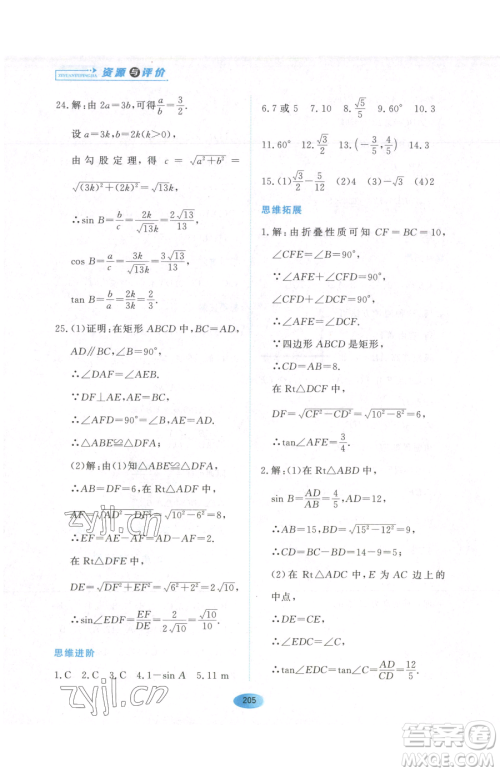 资源与评价
24.解:由2a=3b,可得a/b=3/2.
设a=3k,b=2k(k>0),
由勾股定理,得 c=√(a²+b²)
=√((3k)²+(2k)²)=√13k.
∴sin B=b/c=2k/(√13k)=2√13/13,
cos B=a/c=3k/(√13k)=3√13/13,
tan B=b/a=2k/3k=2/3.
25.(1)证明:在矩形ABCD中,BC=AD,
AD∥BC,∠B=90°,
∴∠DAF=∠AEB.
∵DF⊥AE,AE=BC,
∴∠AFD=90°,AE=AD.
∴△ABE≌△DFA.
(2)解:由(1)知△ABE≌△DFA,
∴AB=DF=6,在Rt△ADF中,
AF=√(AD²-DF²)=√(10²-6²)=8.
∴EF=AE-AF=AD-AF=2.
在Rt△DFE中,
DE=√(DF²+EF²)=√(6²+2²)=2√10,
∴sin∠EDF=EF/DE=2/(2√10)=√10/10.
思维进阶
1.C 2.C 3.C 4.1-sin A 5.11 m
6.7或5 7.10 8.√5/5 9.60° 10.4
11.60° 12.√3/2 13.(-3/5,4/5) 14.3
15.(1)√3/2-5/12 (2)4 (3)6 (4)2
思维拓展
1.解:由折叠性质可知CF=BC=10,
∠CFE=∠B=90°.
∴∠AFE+∠CFD=90°.
∵∠AFE+∠AEF=90°,
∴∠AEF=∠CFD.
∵四边形ABCD是矩形,
∴CD=AB=8.
在Rt△DCF中,
DF=√(CF²-CD²)=√(10²-8²)=6,
∴tan∠AFE=3/4.
2.解:(1)在Rt△ABD中,
sin B=AD/AB=4/5=12/AB,
∴AB=15,BD=√(15²-12²)=9,
∴CD=BC-BD=14-9=5;
(2)在Rt△ADC中,E为AC边上的
中点,
∴DE=EC,
∴∠EDC=∠C,
∴tan∠EDC=tan∠C=AD/CD=12/5.
205
zyjl.cn